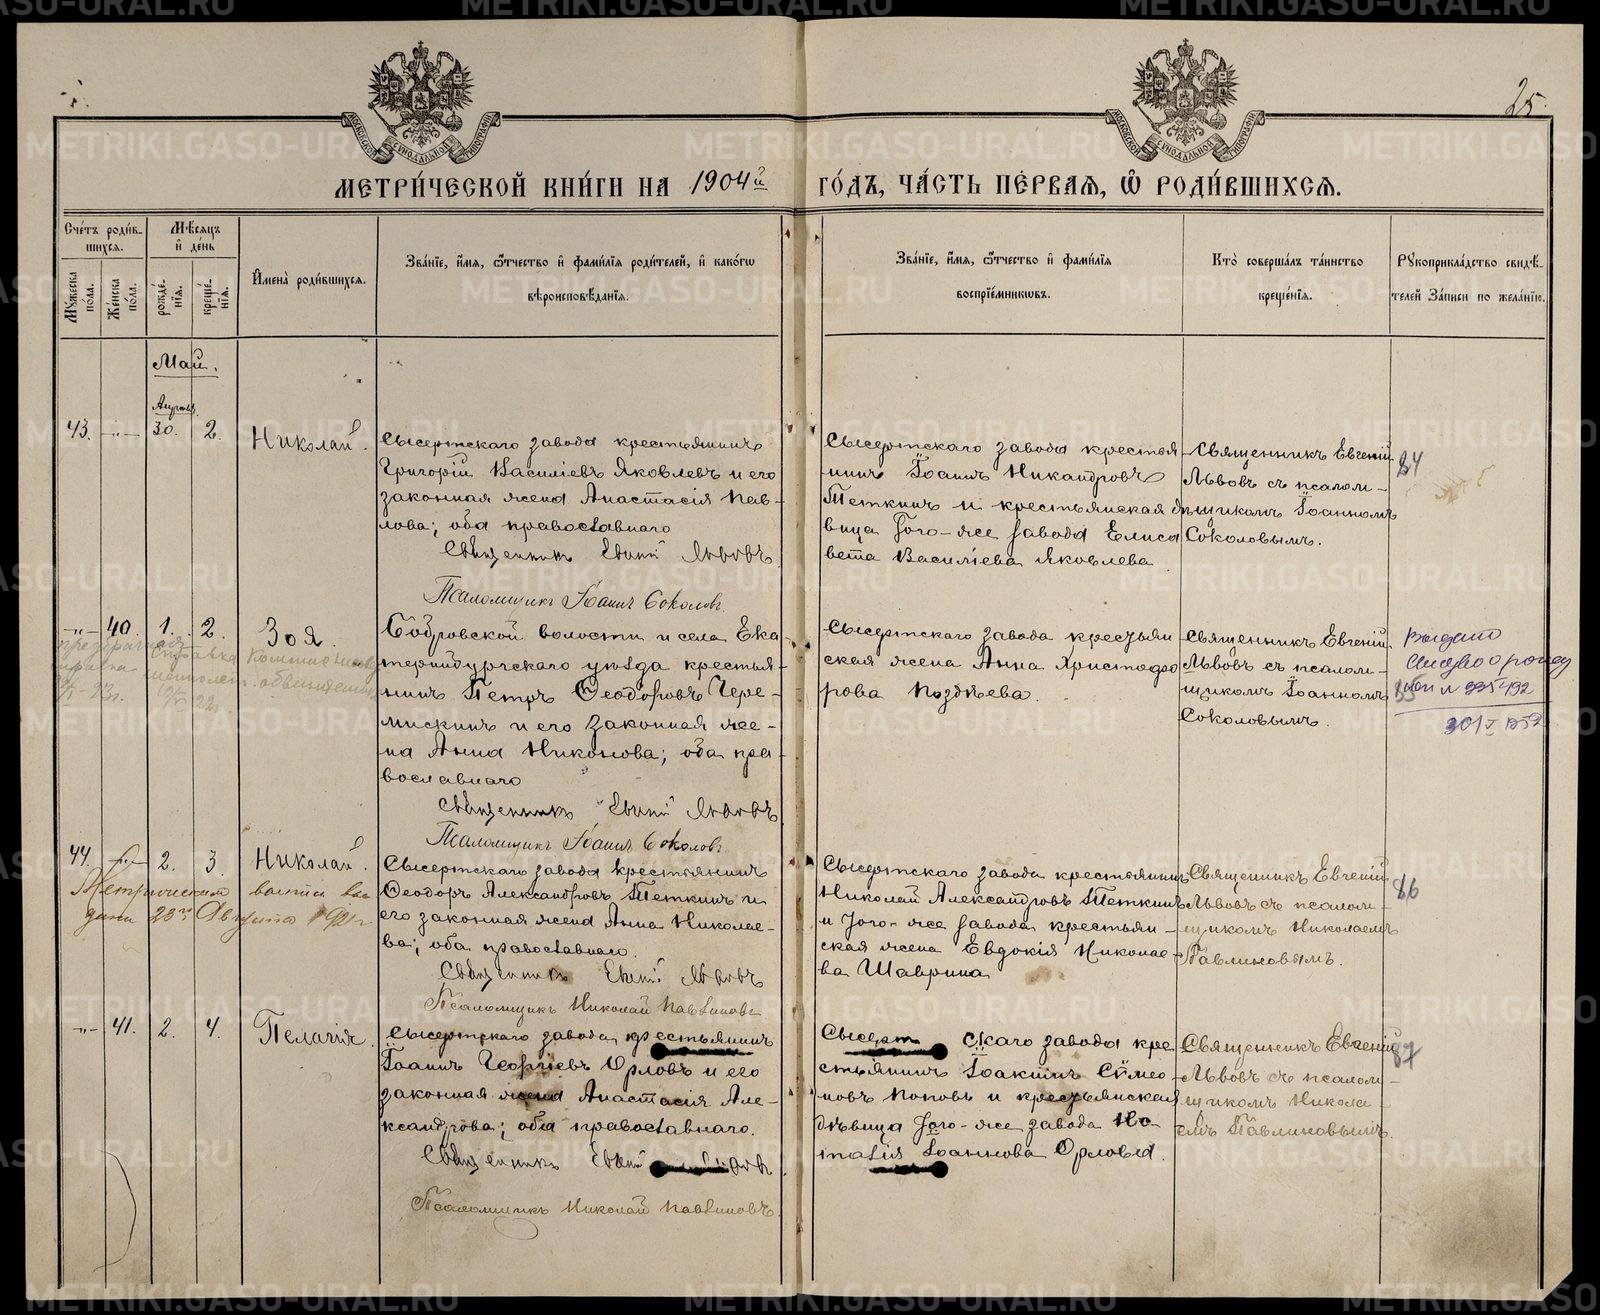 25.
МОСКОВСКОЙ СѴНОДАЛЬНОЙ ТИПОГРАФІИ
МОСКОВСКОЙ СѴНОДАЛЬНОЙ ТИПОГРАФІИ
МЕТРИ́ЧЕСКОЙ КНИ́ГИ НА 1904й ГО́ДЪ, ЧА́СТЬ ПЕ́РВАѦ, Ѡ҆ РОДИ́ВШИХСѦ.
Сче́тъ роди́в-
шихся.
Мꙋжеска по́ла.
Же́нска по́ла.
Мѣ́сяцъ и҆ де́нь
рожде́-
нїя.
креще́-
нїя.
И҆мена̀ роди́вшихся.
Зва́нїе, и҆́мя, ѻ҆́тчество и҆ фами́лїя роди́телей, и҆ како́гѡ
вѣроисповѣ́данїя.
Зва́нїе, и҆́мя, ѻ҆́тчество и҆ фами́лїя
воспрїе́мникѡвъ.
Кто̀ соверша́лъ та́инство
креще́нїя.
Рꙋкоприкла́дство свидѣ́-
телей за́писи по жела́нїю.
Май.
Апрѣля
43. -"- 30. 2. Николай.
Сысертскаго завода крестьянинъ
Григорій Василіевъ Яковлевъ и его
законная жена Анастасія Пав-
лова; оба православнаго
Священникъ Евгеній Львовъ
Псаломщикъ Іоаннъ Соколовъ.
Сысертскаго завода крестья-
нинъ Іоаннъ Никандровъ
Теткинъ и крестьянская дѣ-
вица того-же завода Елиса
вета Василіева Яковлева
Священникъ Евгеній
Львовъ съ псалом-
щикомъ Іоанномъ
Соколовымъ.
84
-"- 40. 1. 2. Зоя.
Екатеринбургскаго уѣзда крестья-
нинъ Петръ Ѳеодоровъ Чере-
мискинъ и его законная же-
на Анна Никонова; оба пра-
вославнаго
Священникъ Евгеній Львовъ
Псаломщикъ Іоаннъ Соколовъ
Сысертскаго завода крестьян
ская жена Анна Христофо
рова Позднѣева.
Священникъ Евгеній
Львовъ съ псалом-
щикомъ Іоанномъ
Соколовымъ.
85
выдано
44. -"- 2. 3. Николай.
Метрическая выпись вы
дана 23го Августа 1921г
Сысертскаго завода крестьянинъ
Ѳеодоръ Александровъ Теткинъ и
его законная жена Анна Николае-
ва; оба православнаго.
Священникъ Евгеній Львовъ
Псаломщикъ Николай Павлиновъ
Сысертскаго завода крестьянинъ
Николай Александровъ Теткинъ
и того-же завода крестьян-
ская жена Евдокія Николае-
ва Шаврина
Священникъ Евгеній
Львовъ съ псалом-
щикомъ Николаемъ
Павлиновымъ.
86
-"- 41. 2. 4. Пелагія.
Сысертскаго завода крестьянинъ
Іоаннъ Георгіевъ Орловъ и его
законная жена Анастасія Але-
ксандрова; оба православнаго.
Священникъ Евгеній Львовъ
Псаломщикъ Николай Павлиновъ.
Сысертскаго завода кре
стьянинъ Іоакимъ Сѵмео
новъ Поповъ и крестьянская
дѣвица того-же завода На
талія Іоаннова Орлова.
Священникъ Евгеній
Львовъ съ псалом-
щикомъ Никола
емъ Павлиновымъ.
87
METRIKI.GASO-URAL.RU